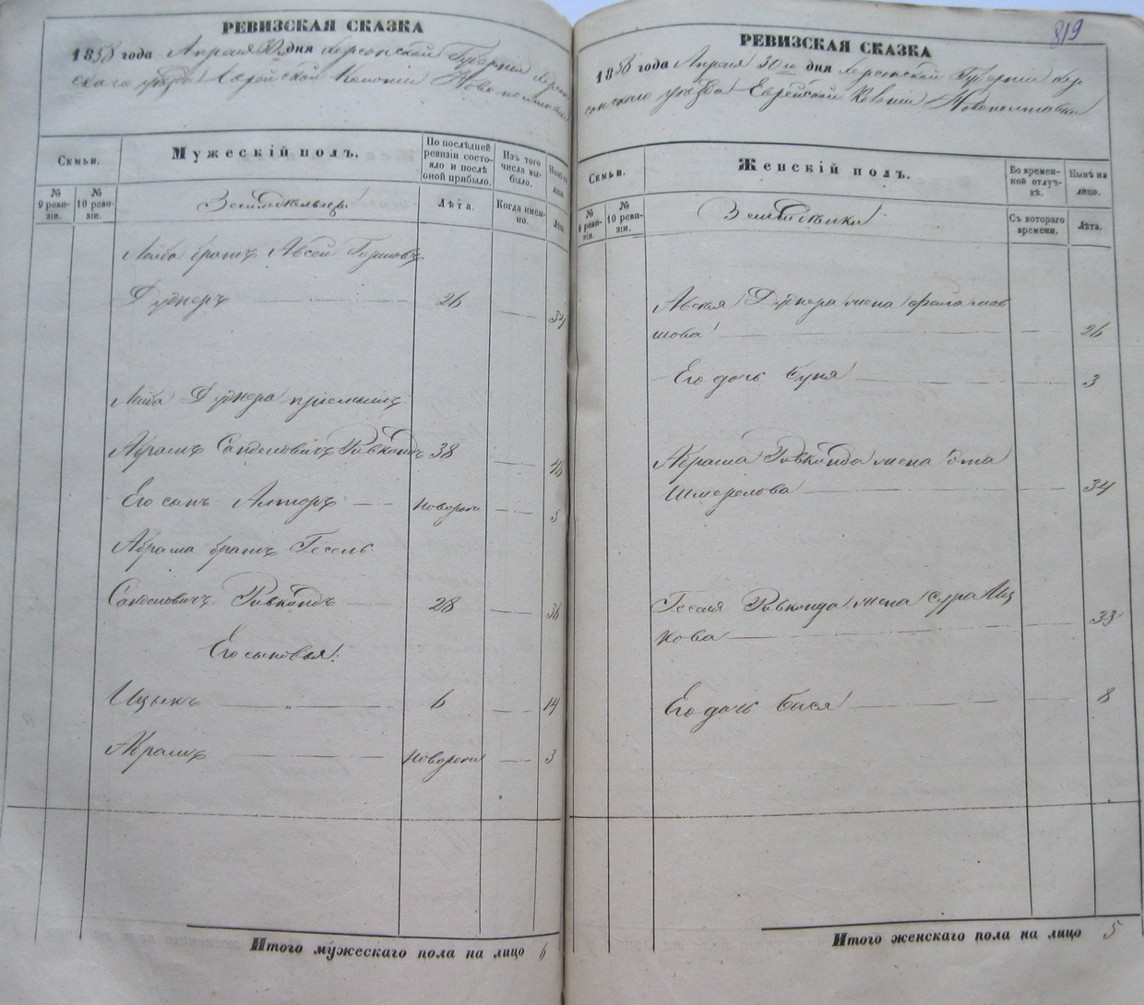 РЕВИЗСКАЯ СКАЗКА
1858 года Апреля 30 дня Херсонской Губерніи Херсон
скаго уезда Еврейской Колоніи Новополтавки
Семьи.
Мужескій полъ.
По послѣдней ревизіи состояло и послѣ оной прибыло.
Изъ того числа выбыло.
№ 9 ревизіи.
№ 10 ревизіи.
Земледельцы
Лѣта.
Когда именно.
Лейба братъ Абсей
Дуднеръ 26 34
Лейба Дуднера пріемышъ
Абрамъ Санделовичъ Ривкиндъ 38 46
Его сынъ Алтеръ новорож 5
Абрама братъ Гесель
Санделовичъ Ривкиндъ 28 36
Его сыновья:
Ицыкъ 6 14
Абрамъ новорож 3
Итого мужескаго пола на лицо 6
819
РЕВИЗСКАЯ СКАЗКА
1858 года Апреля 30го дня Херсонской Губерніи Хер
сонскаго уезда Еврейской Колоніи Новополтавки
Семьи.
Женскій полъ.
Во временной отлучкѣ.
Нынѣ на лицо.
№ 9 ревизіи.
№ 10 ревизіи.
Съ котораго времени.
Лѣта.
Абсея Дуднера жена
26
Его дочь Буня 3
Абрама Ривкинда жена
Шмерелова 34
Геселя Ривкинда жена Сура Иц
кова 33
Его дочь Бася 8
Итого женскаго пола на лицо 5